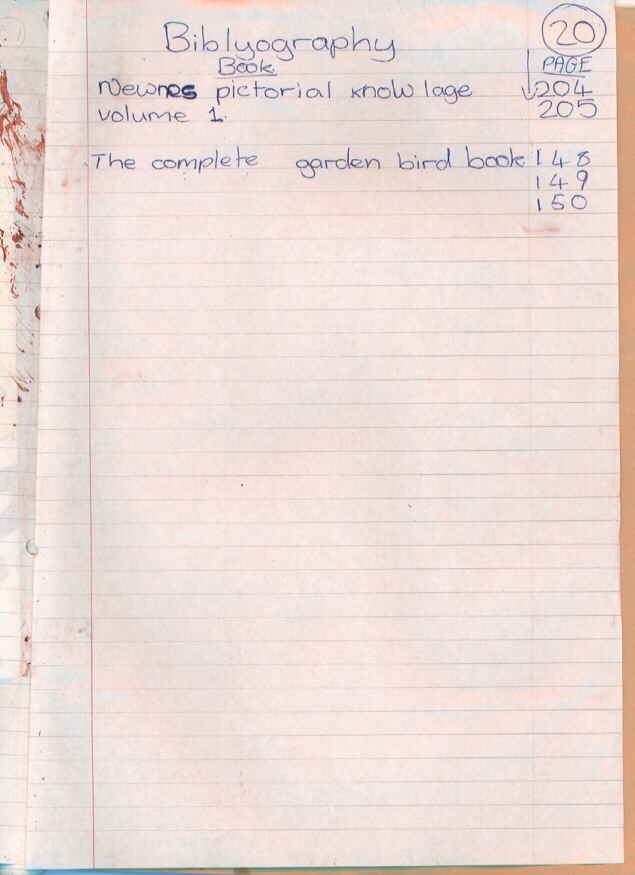 20
Biblyography
Book PAGE
Newnes pictorial know lage 204
volume 1. 205
The complete garden bird book 148
149
150